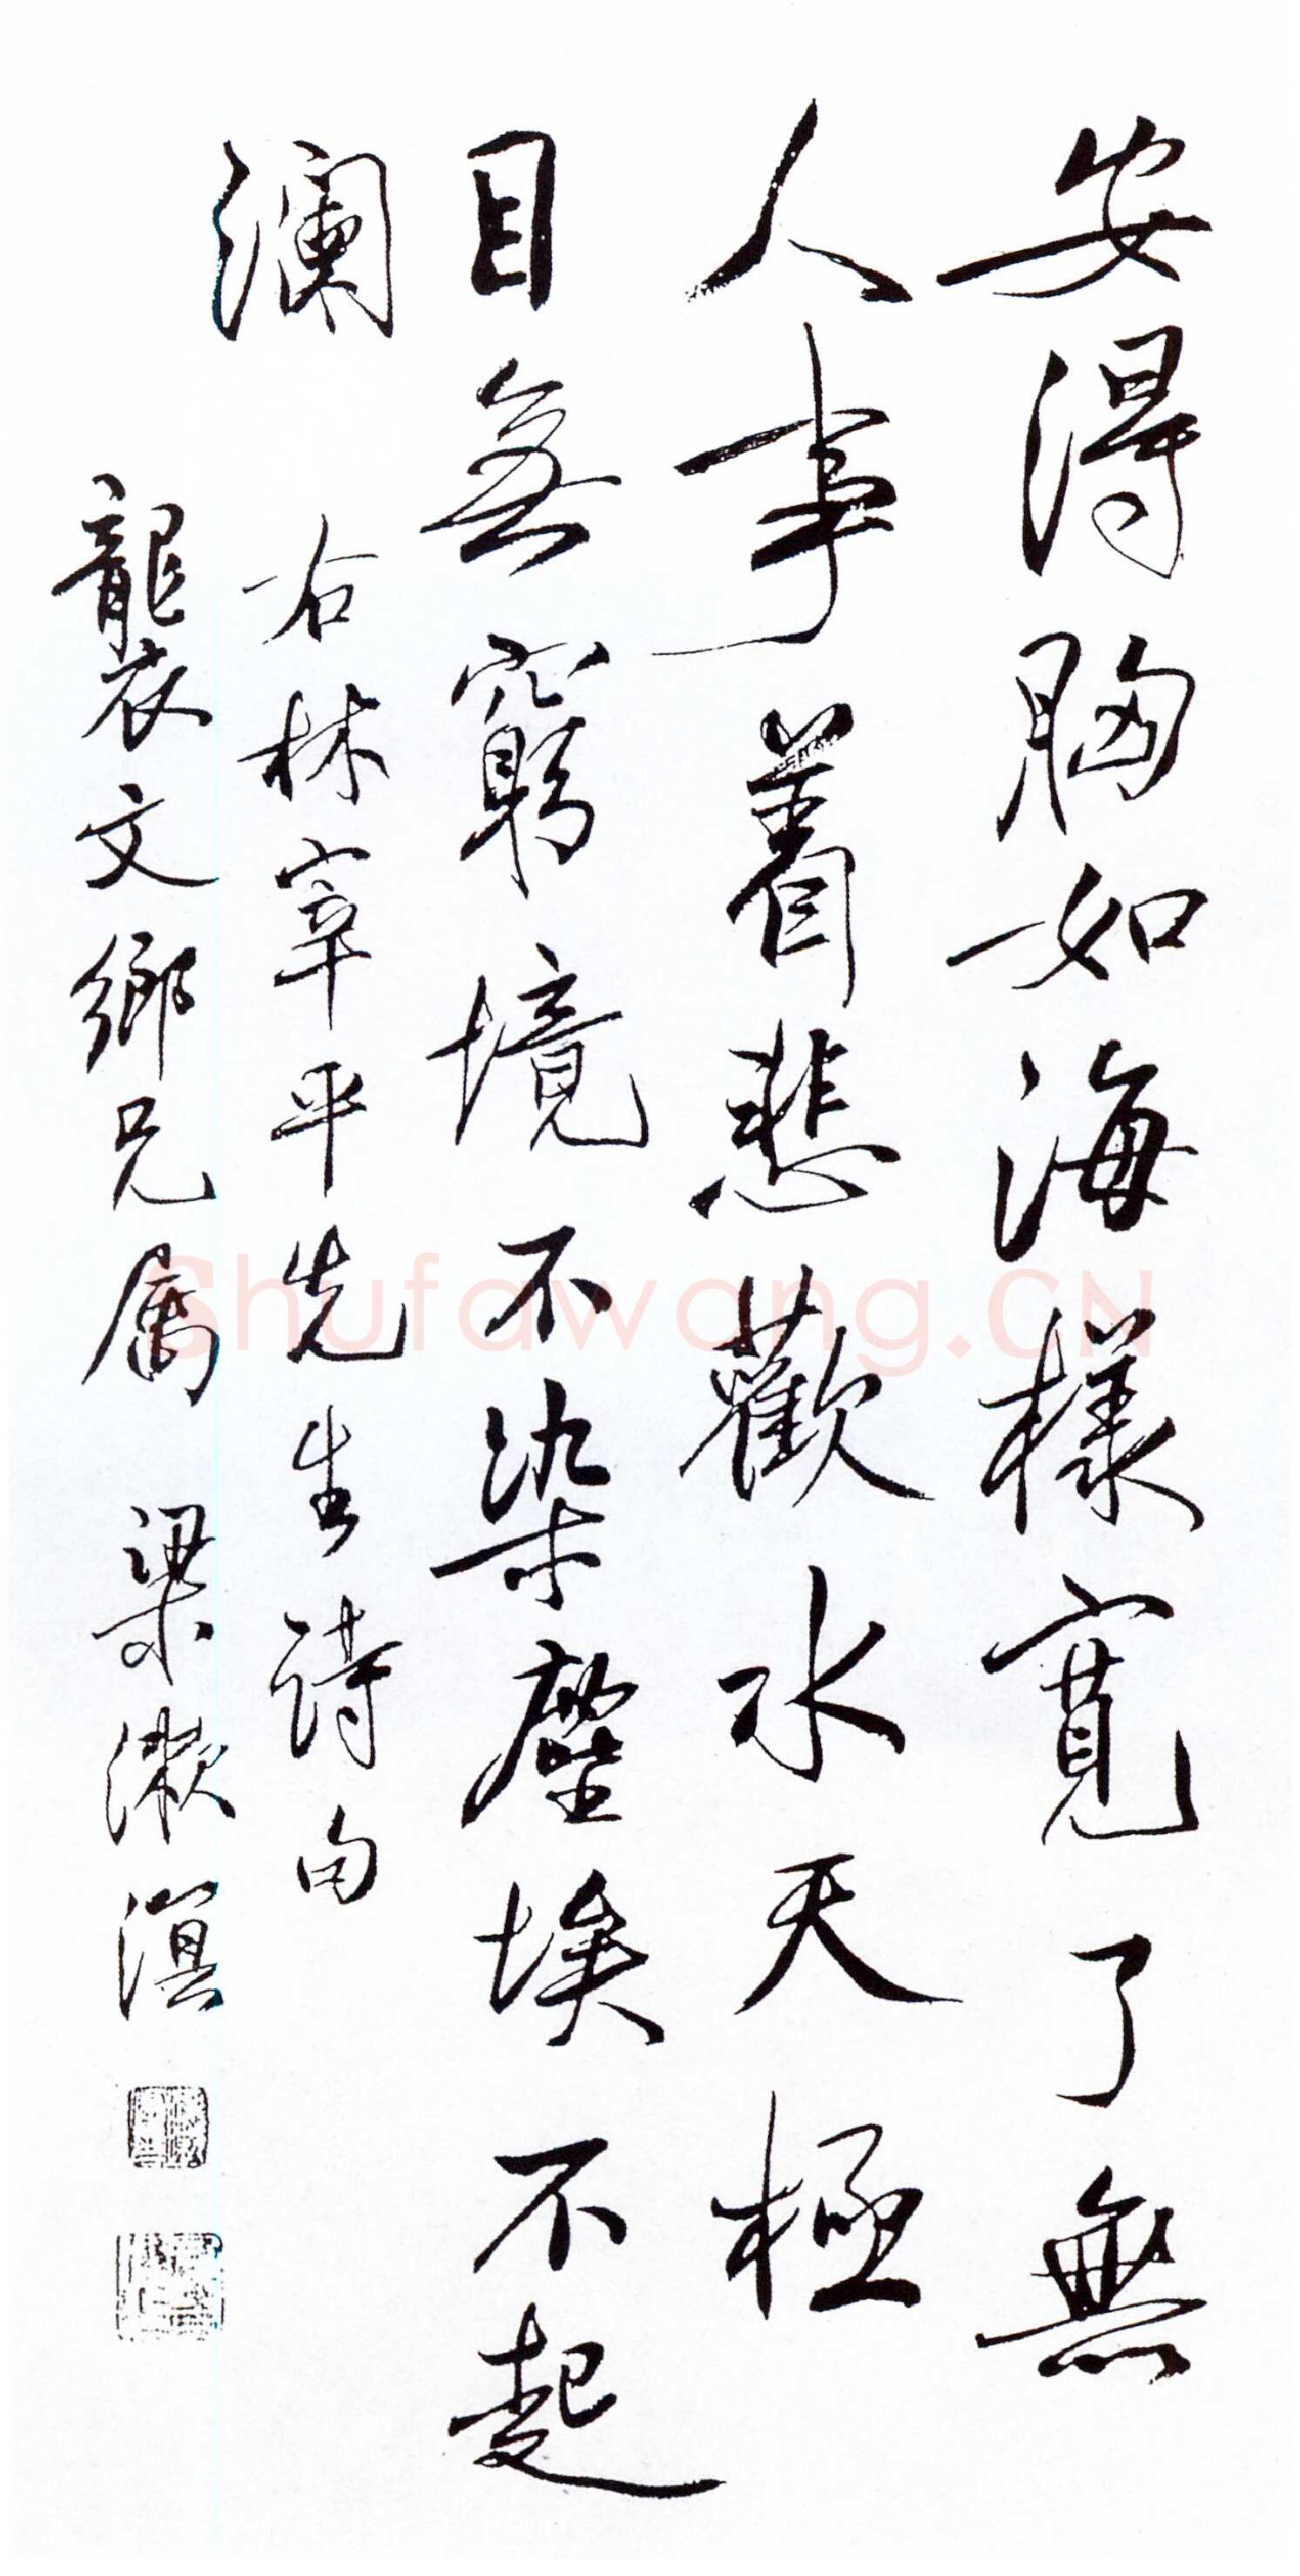 安得胸如海樣寬了無
人事着悲歡水天極
目無窮境不染塵埃不起
瀾
右林宰平先生詩句
龔衣文鄉兄属 梁漱溟
Shufawang.CN